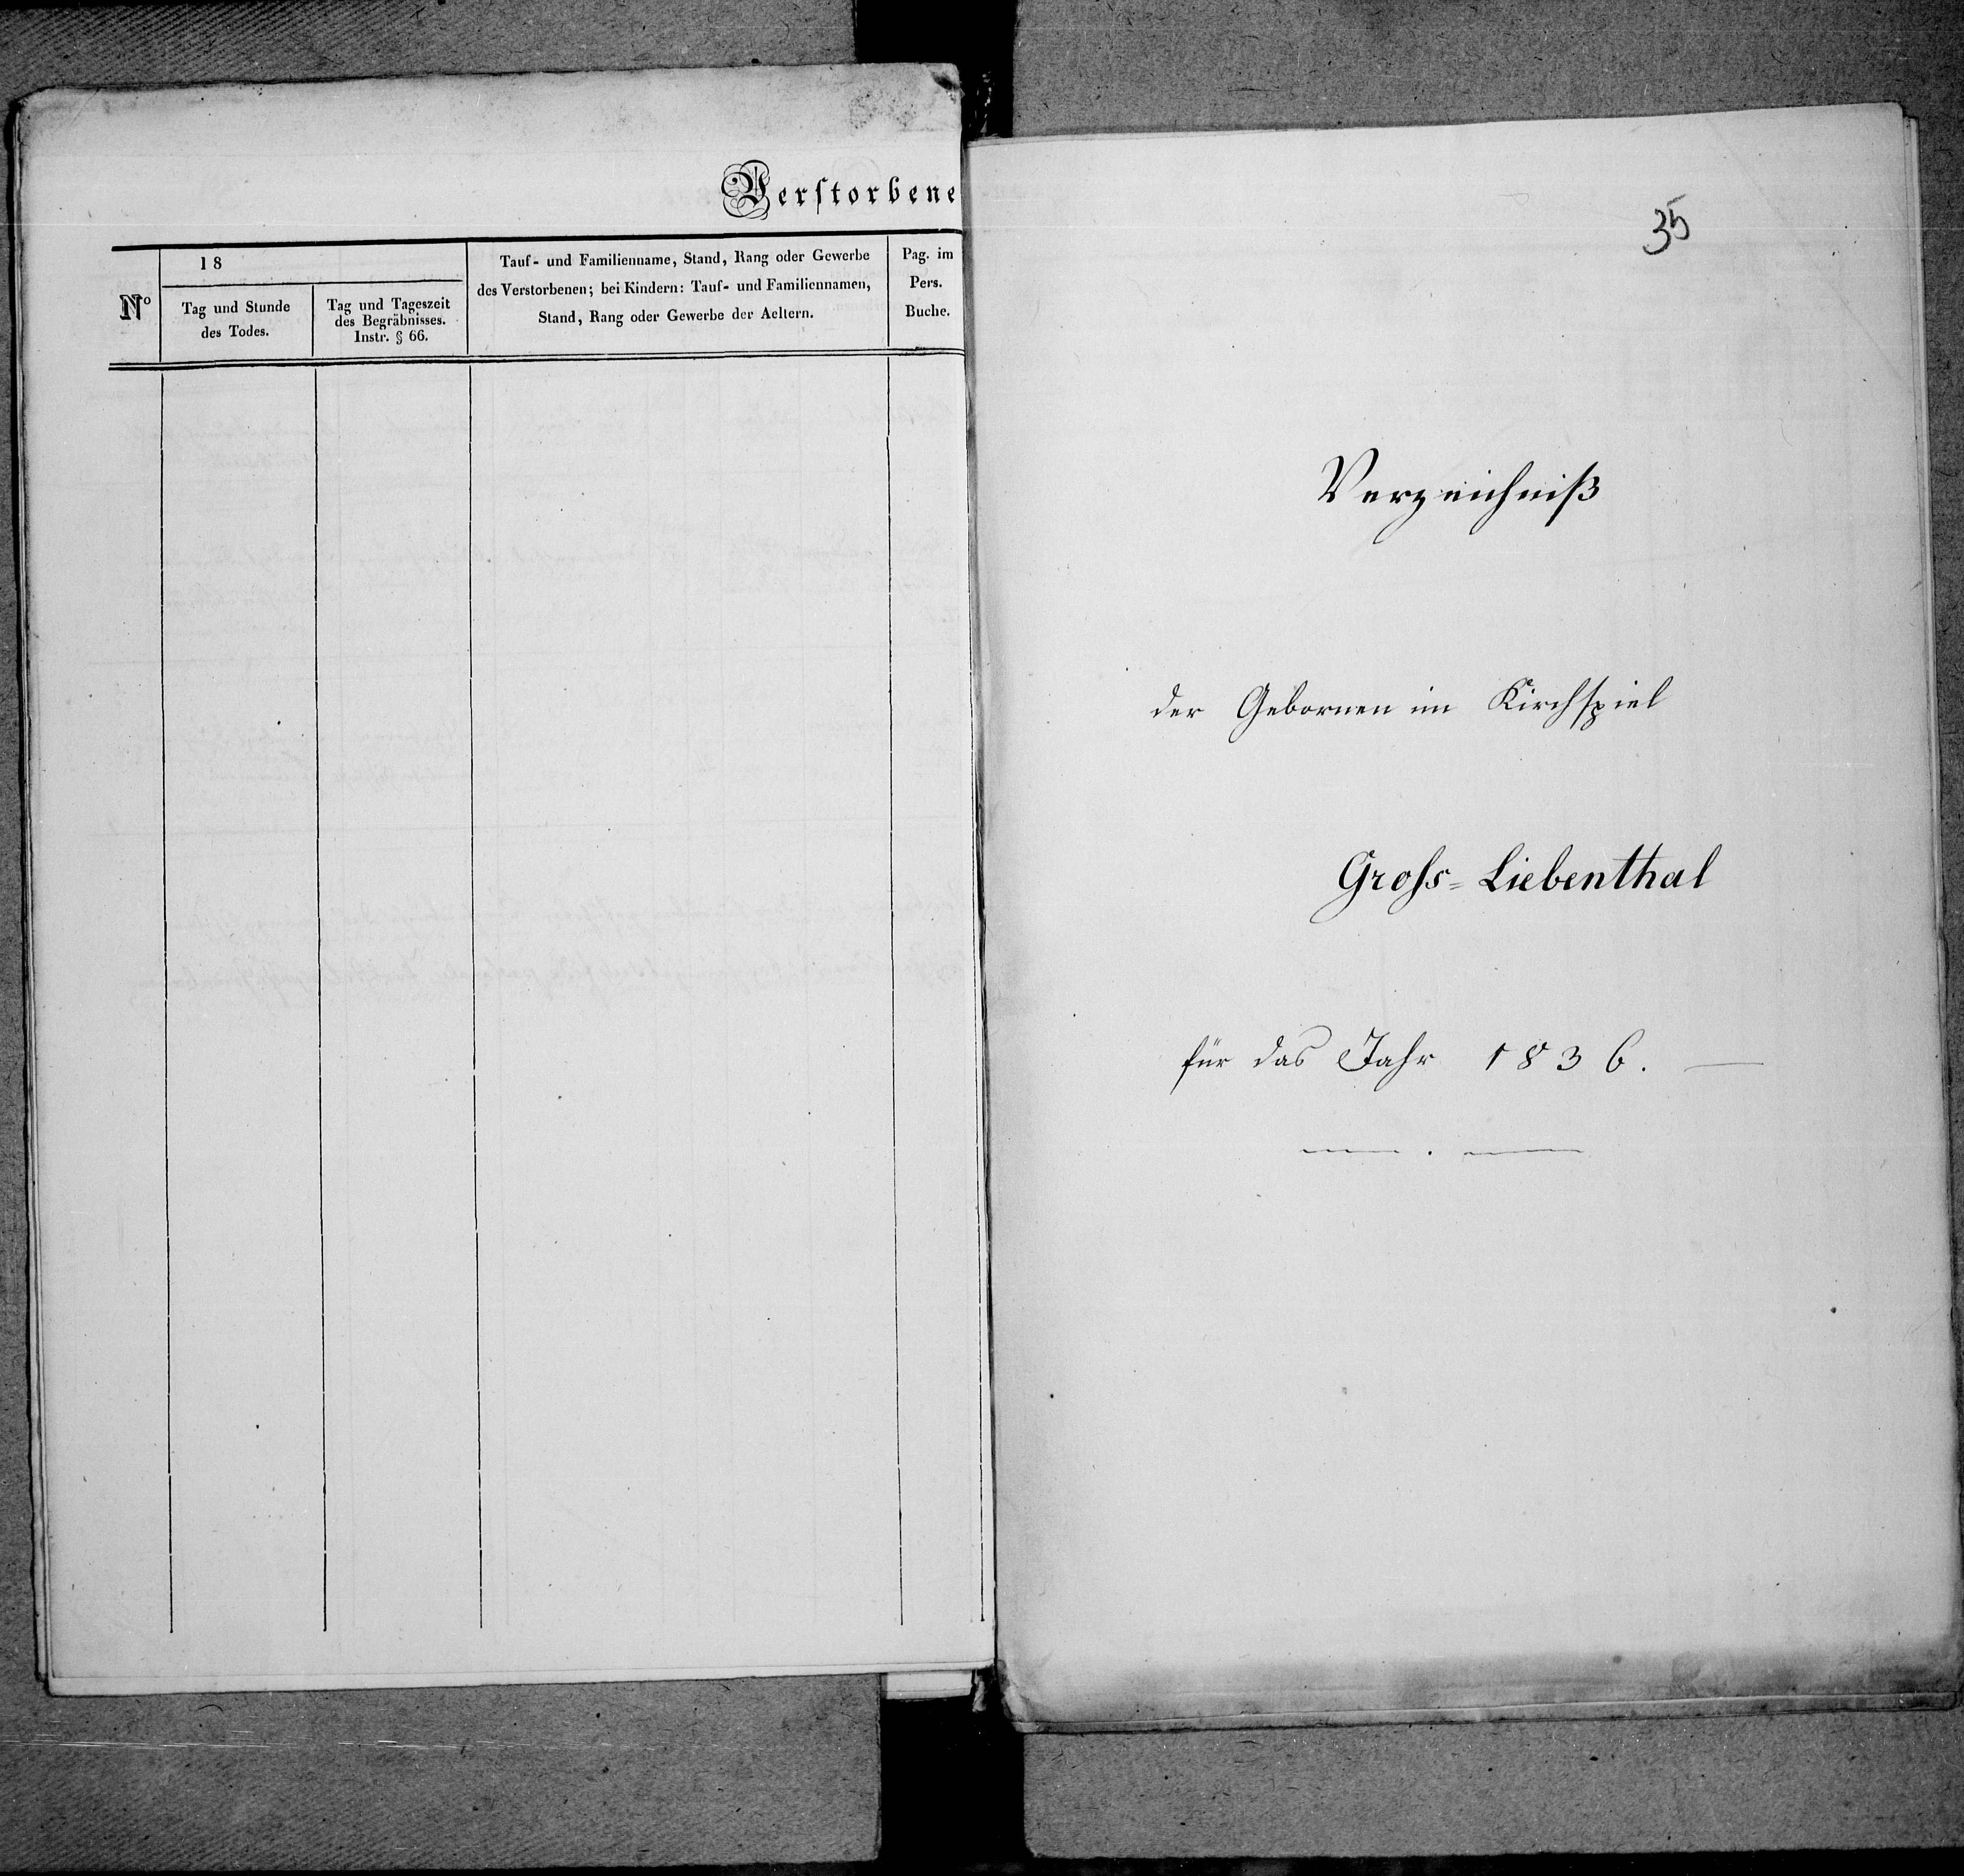 Verstorbene
Nº
18
Tag und Stunde
des Todes.
Tag und Tageszeit
des Begräbnisses.
Instr. § 66.
Tauf- und Familienname, Stand, Rang oder Gewerbe
des Verstorbenen; bei Kindern: Tauf- und Familiennamen,
Stand, Rang oder Gewerbe der Aeltern.
Pag. im
Pers.
Buche.
35
Verzeichniß
der Gebornen im Kirchspiel
Gross-Liebenthal
für das Jahr 1836.